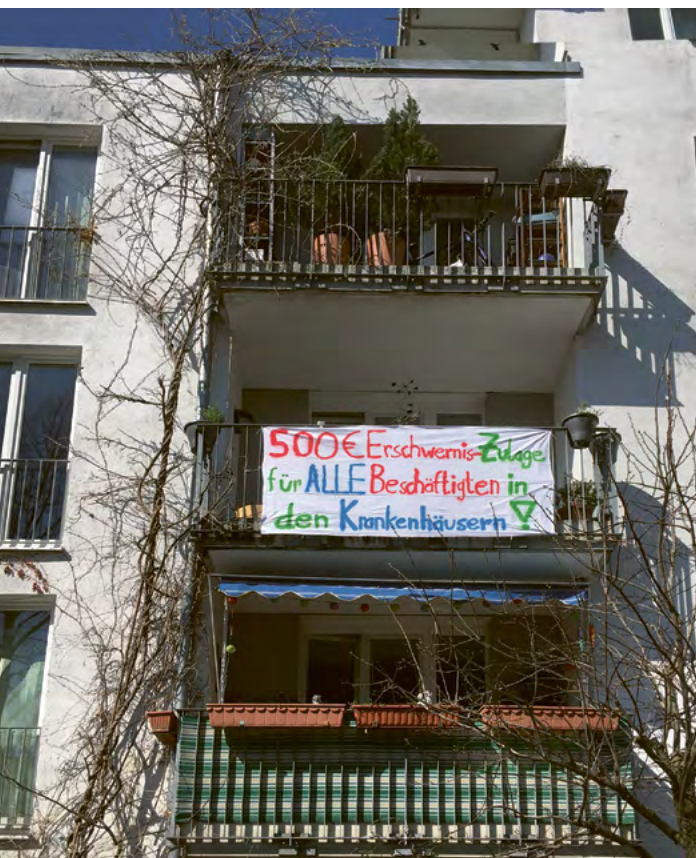 500€ Erschwernis-Zulage
für ALLE Beschäftigten in
den Krankenhäusern!